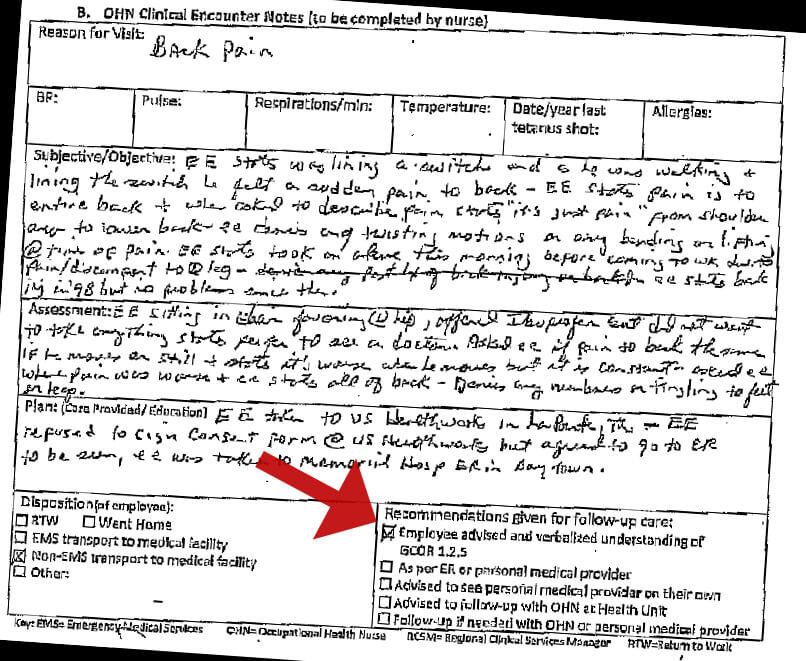 B. OHN Clinical Encounter Notes (to be completed by nurse)
Reason for Visit: Back pain
BP: Pulse: Respirations/min: Temperature: Date/year last tetanus shot: Allergies:
Subjective/Objective: EE states was lining a switch and as he was walking +
lining the switch he felt a sudden pain to back - EE states pain is to
entire back + when asked to describe pain states "it's just pain" from shoulder
area to lower back - ee denies any twisting motions or any bending or lifting
@ time of pain. EE states took an aleve this morning before coming to wk due to
pain/discomfort to leg - ee states back
inj in 98 but no problems since then.
Assessment: EE sitting in chair favoring hip, offered Ibuprofen but did not want
to take anything states prefer to see a doctor. Asked ee if pain to back the same
if he moves or still + states it's worse when he moves but it is constant - asked ee
where pain was worse + ee states all of back - Denies any numbness or tingling to feet
or legs.
Plan: (Care Provided/Education) EE taken to US Healthworks in LaPorte, TX - EE
refused to sign Consent Form @ US Healthworks but agreed to go to ER
to be seen, ee was taken to Memorial Hosp ER in Baytown.
Disposition (of employee):
RTW Went Home
EMS transport to medical facility
Non-EMS transport to medical facility
Other:
Recommendations given for follow-up care:
Employee advised and verbalized understanding of
GCOR 1.2.5
As per ER or personal medical provider
Advised to see personal medical provider on their own
Advised to follow-up with OHN at Health Unit
Follow-up if needed with OHN or personal medical provider
Key: EMS= Emergency Medical Services OHN= Occupational Health Nurse RCSM= Regional Clinical Services Manager RTW=Return to Work